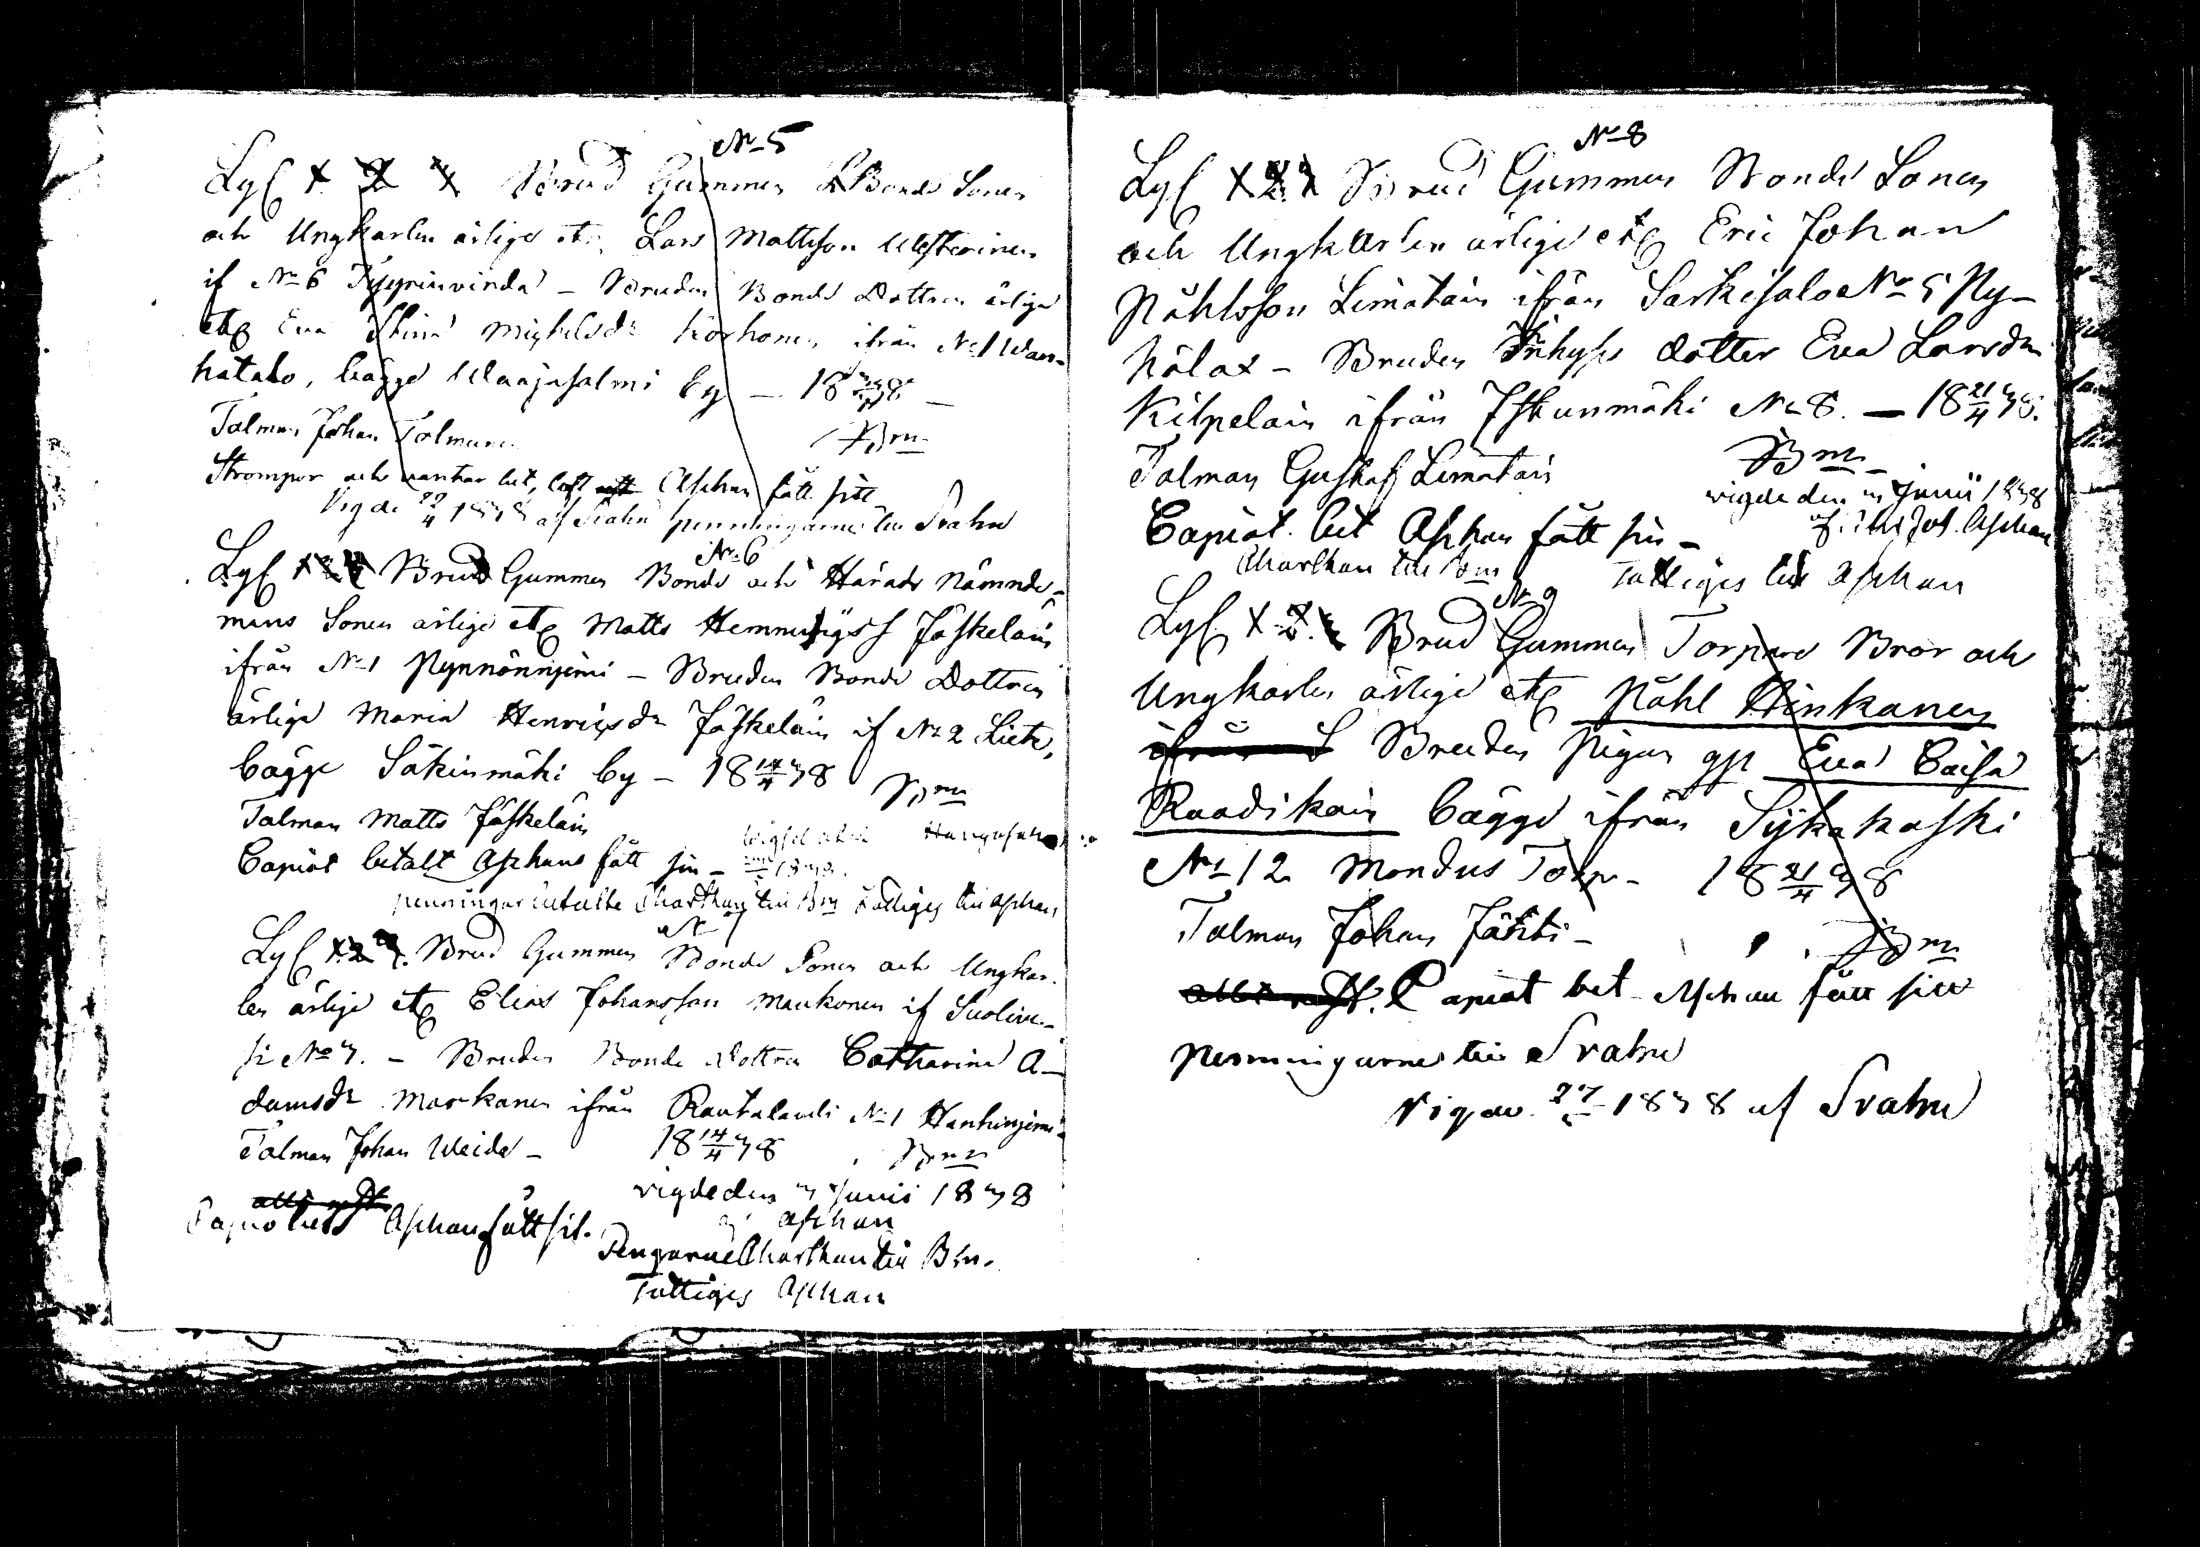 No 5
Lys 1. 2. 3. Brud Gummen Bonde Sonen
och Ungkarlen ärlige etc. Lars Mattsson Westerinen
if No 6 Tyyrinvirda – Bruden Bonde Dottren ärliga
etc Eva Stina Michelsdr Korhonen ifrån No 1 Wan-
hatalo, bägge Waajasalmi by – 18 38 –
Talman Johan Tolmunen Bm
Strompor och vantar bet, Aschan fått sitt
Vigde 22/4 1838 af Svahn penningarne till Svahn
No 6
Lys 1. 2. 3. Brud Gummen Bonde och Härads Nämnde-
mans Sonen ärlige etc Matts Hemmingss Jäskeläin
ifrån No 1 Pynnönnjemi – Bruden Bonde Dottren
ärliga Maria Henrigsdr Jäskeläin if No 2 Liete,
bägge Säkinmäki by – 18 14/4 38 Bm
Talman Matts Jäskeläin
Capiot betalt Aschans fått sin – 1838.
penningar Charthan till Bm Fattiges till Aschan
No 7
Lys 1. 2. 3. Brud Gummen Bonde Sonen och Ungkar-
len ärlige etc Elias Johansson Maukonen if Suolive-
si No 3. – Bruden Bonde Dottren Catharina A-
damsdr Markanen ifrån Rautalambi No 1 Hanhinjemi
Talman Johan Weide – 18 14/4 38 Bm
vigde den 3 Junii 1838
af Aschan
Capiot bet Aschan fått sit.
Pengarne Charthan till Bm.
Fattiges Aschan
No 8
Lys 1. 2. 3 Brud Gummen Bonde Sonen
och Ungkarlen ärlige etc Eric Johan
Påhlsson Limatain ifrån Särkisalo No 5 Ny-
hålax – Bruden Inhyss dotter Eva Larsdr
Kilpelain ifrån Istunmäki No 8. – 18 21/4 38.
Talman Gustaf Limatain Bm
vigde den Junii 1838
Capiot bet Aschan fått sin – af Aschan
Charthan till Bm Fattiges till Aschan
No 9
Lys 1. 2. 3 Brud Gummen Torpare Bror och
Ungkarlen ärlige etc Påhl Hinkanen
ifrån S Bruden Pigan gp Eva Caisa
Raadikain bägge ifrån Sykäkoski
No 12 Mondus Torp – 18 21/4 38
Talman Johan Jäntti – Bm
Capiot bet Aschan fått sitt
penningarne till Svahn
Vigde 27 1838 af Svahn